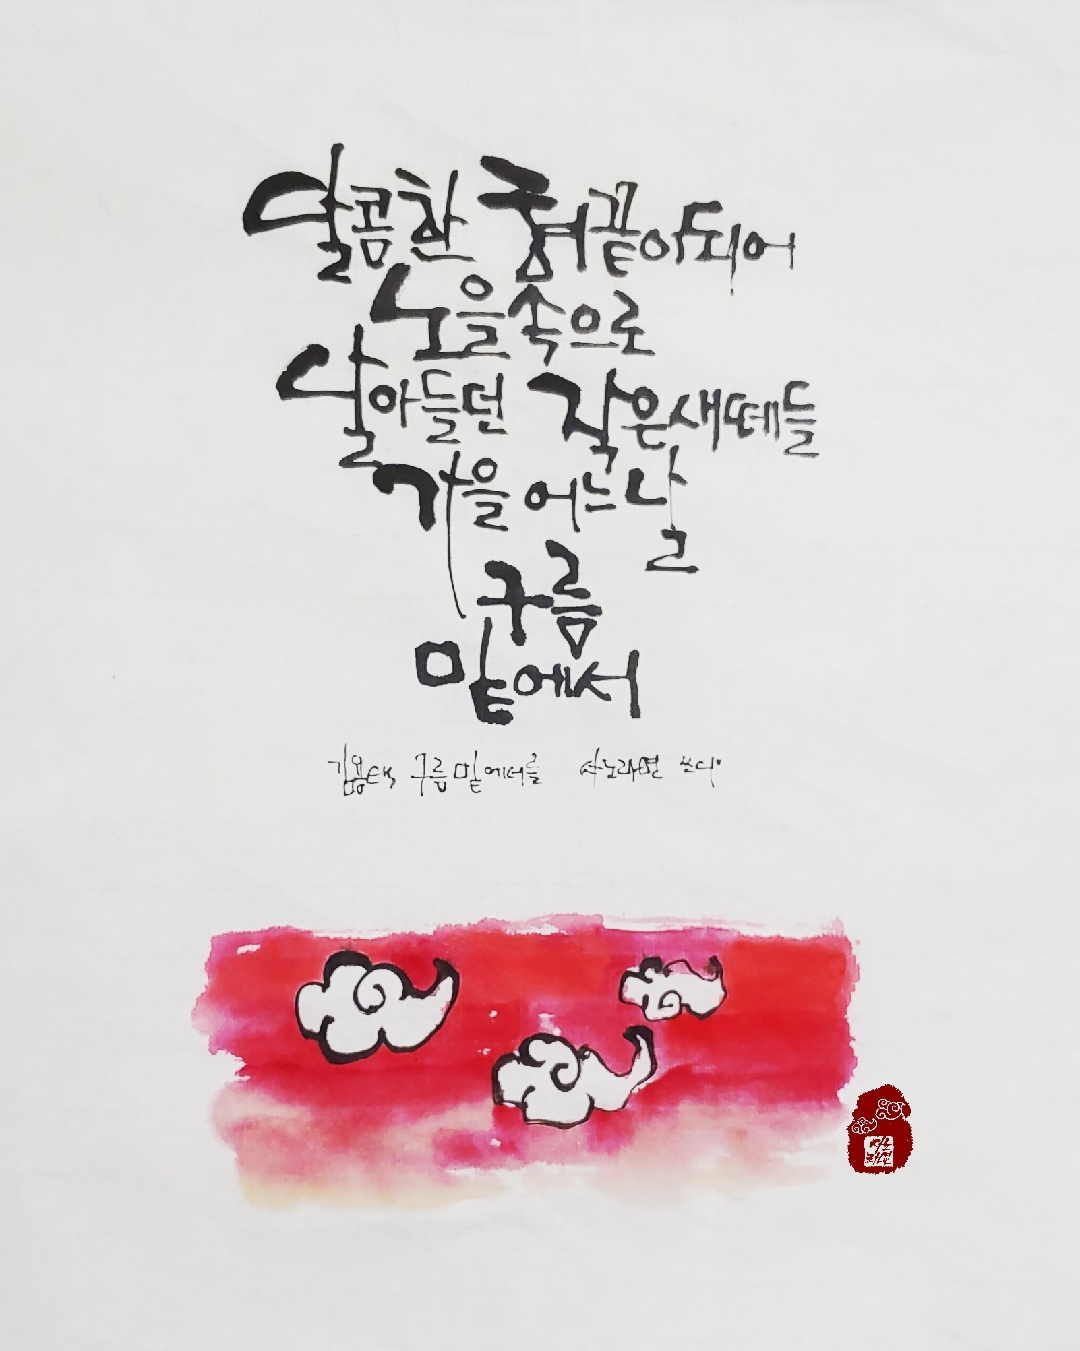 달콤한 혀끝이 되어
노을 속으로
날아들던 작은 새떼들
가을 어느 날
구름
밑에서
김용택 구름 밑에서를 사노라면 쓰다
사노
라면